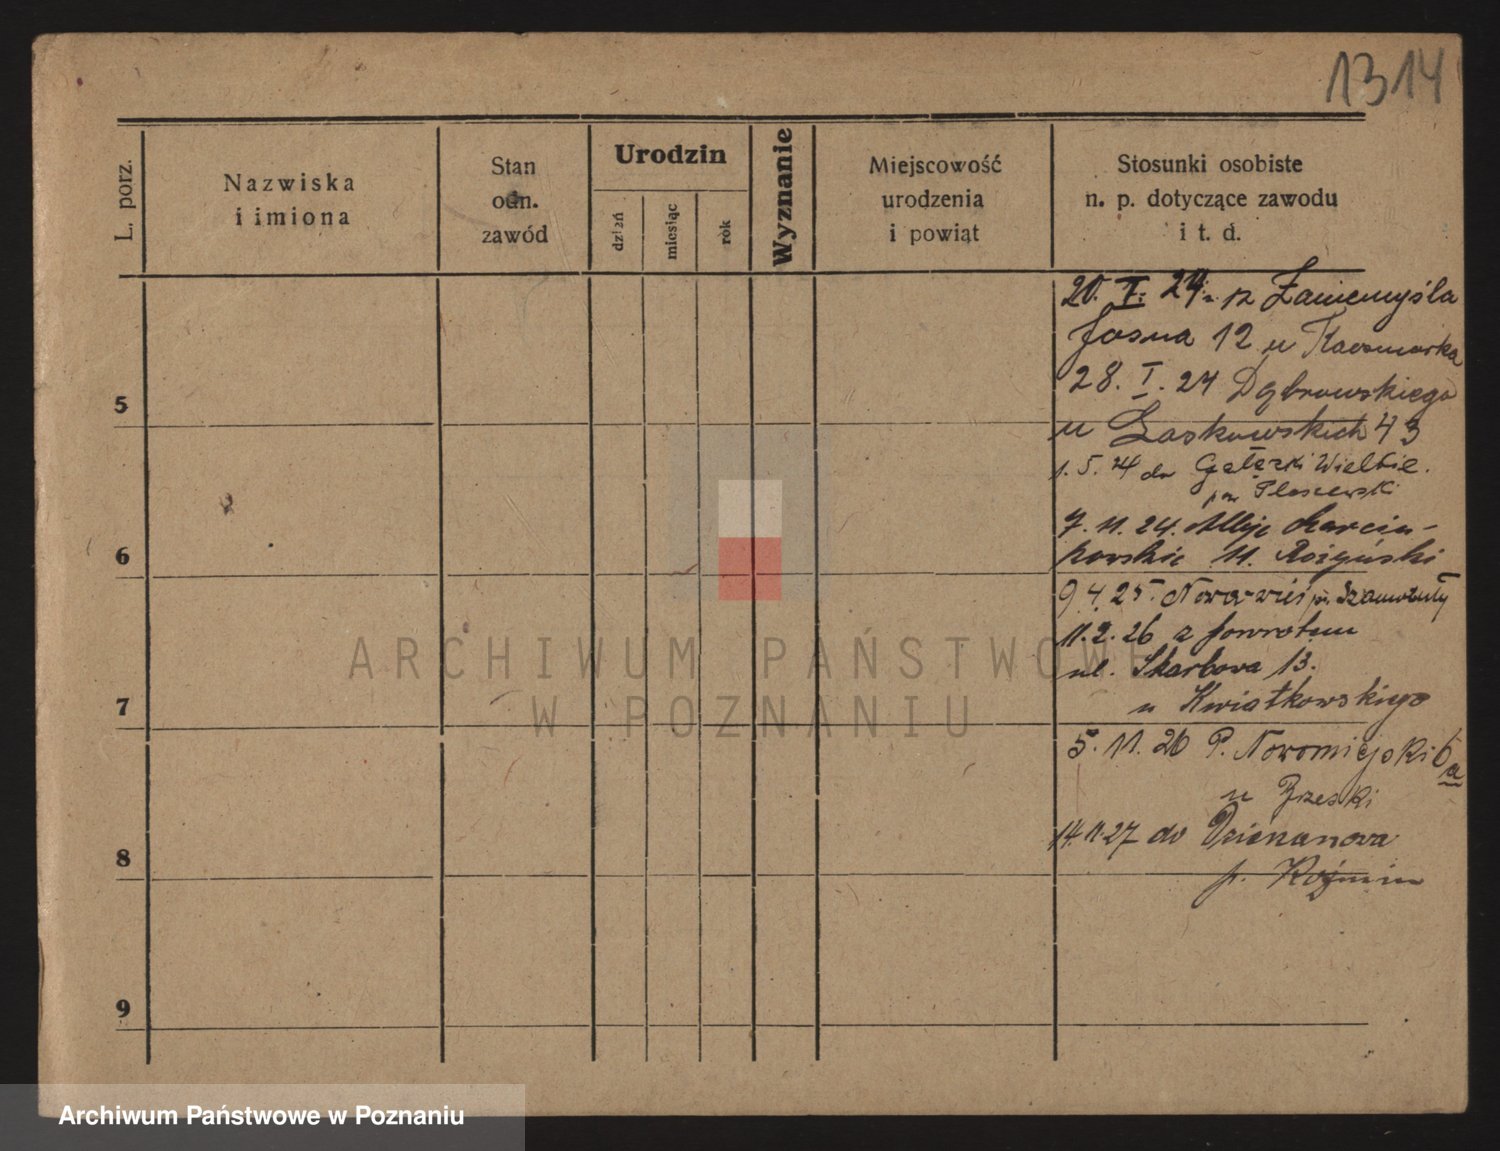 1314
L. porz.
Nazwiska
i imiona
Stan
odn.
zawód
Urodzin
dzień
miesiąc
rok
Wyznanie
Miejscowość
urodzenia
i powiąt
Stosunki osobiste
n. p. dotyczące zawodu
i t. d.
20. I. 24. z Zaniemyśla
Jasna 12 u Kaczmarka
28. I. 24 Dąbrowskiego
5
u Laskowskich 43
1. 5. 24 do Gałązki Wielkie.
pow Pleszewski
7. 11. 24. Aleje Marcin-
kowskie 11.
6
9 4. 25. Nowawieś p. Szamotuły
11. 2. 26 z powrotem
ul. Skarbowa 13.
7
u Kwiatkowskiego
5. 11. 26 P. Nowomiejski 6a
u
14. 11. 27 do
8
p. Koźmin
9
ARCHIWUM PAŃSTWOWE
W POZNANIU
Archiwum Państwowe w Poznaniu